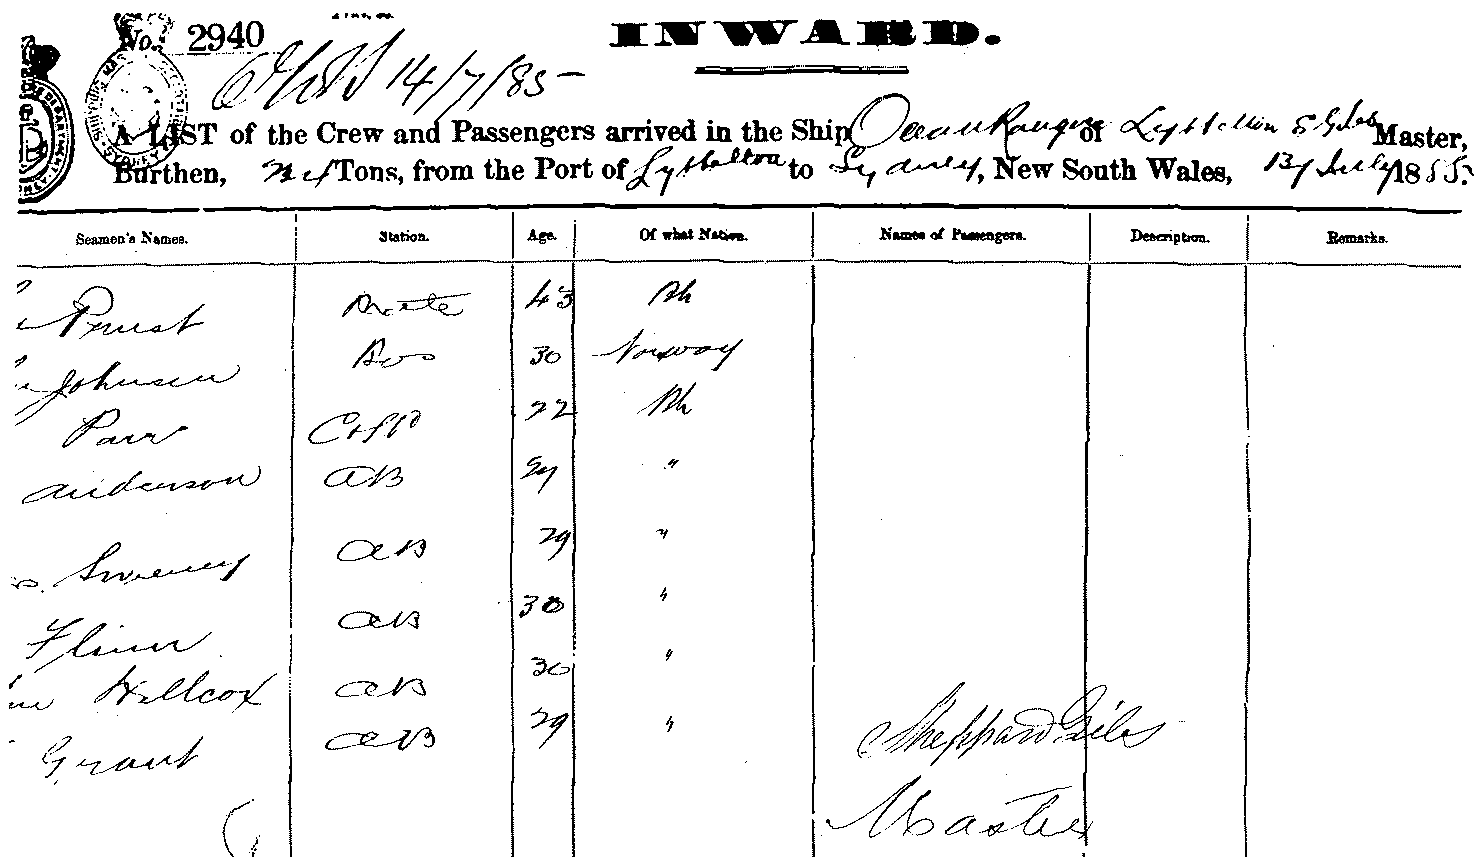 No. 2940
INWARD.
14/7/85
A LIST of the Crew and Passengers arrived in the Ship Ocean Ranger of Lyttelton S Giles Master,
Burthen, Tons, from the Port of Lyttelton to Sydney, New South Wales, 13 July 1885.
Seamen's Names. Station. Age. Of what Nation. Names of Passengers. Description. Remarks.
Prust Mate 43 Bh
Johnsen Bos 30 Norway
Parr 22 Bh
Anderson AB "
Sweeney AB 29 "
Flinn AB 30 "
Willcox AB 30 "
Grant AB 29 "
Sheppard Giles
Master